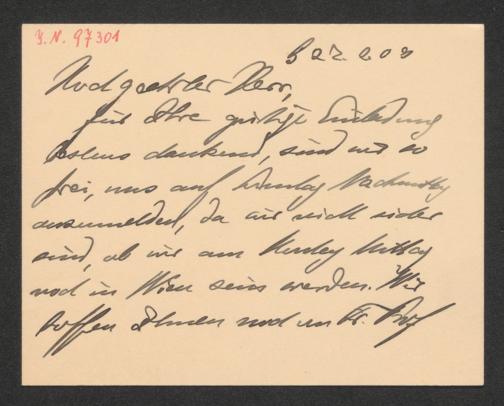 I.N. 97301
Hochgeehrter Herr,
für Ihre gütige Einladung
bestens dankend, sind wir so
frei, uns auf Nachmittag
anzumelden, da wir nicht sicher
sind, ob wir am Mittag
noch in Wien sein werden. Wir
hoffen Ihnen noch